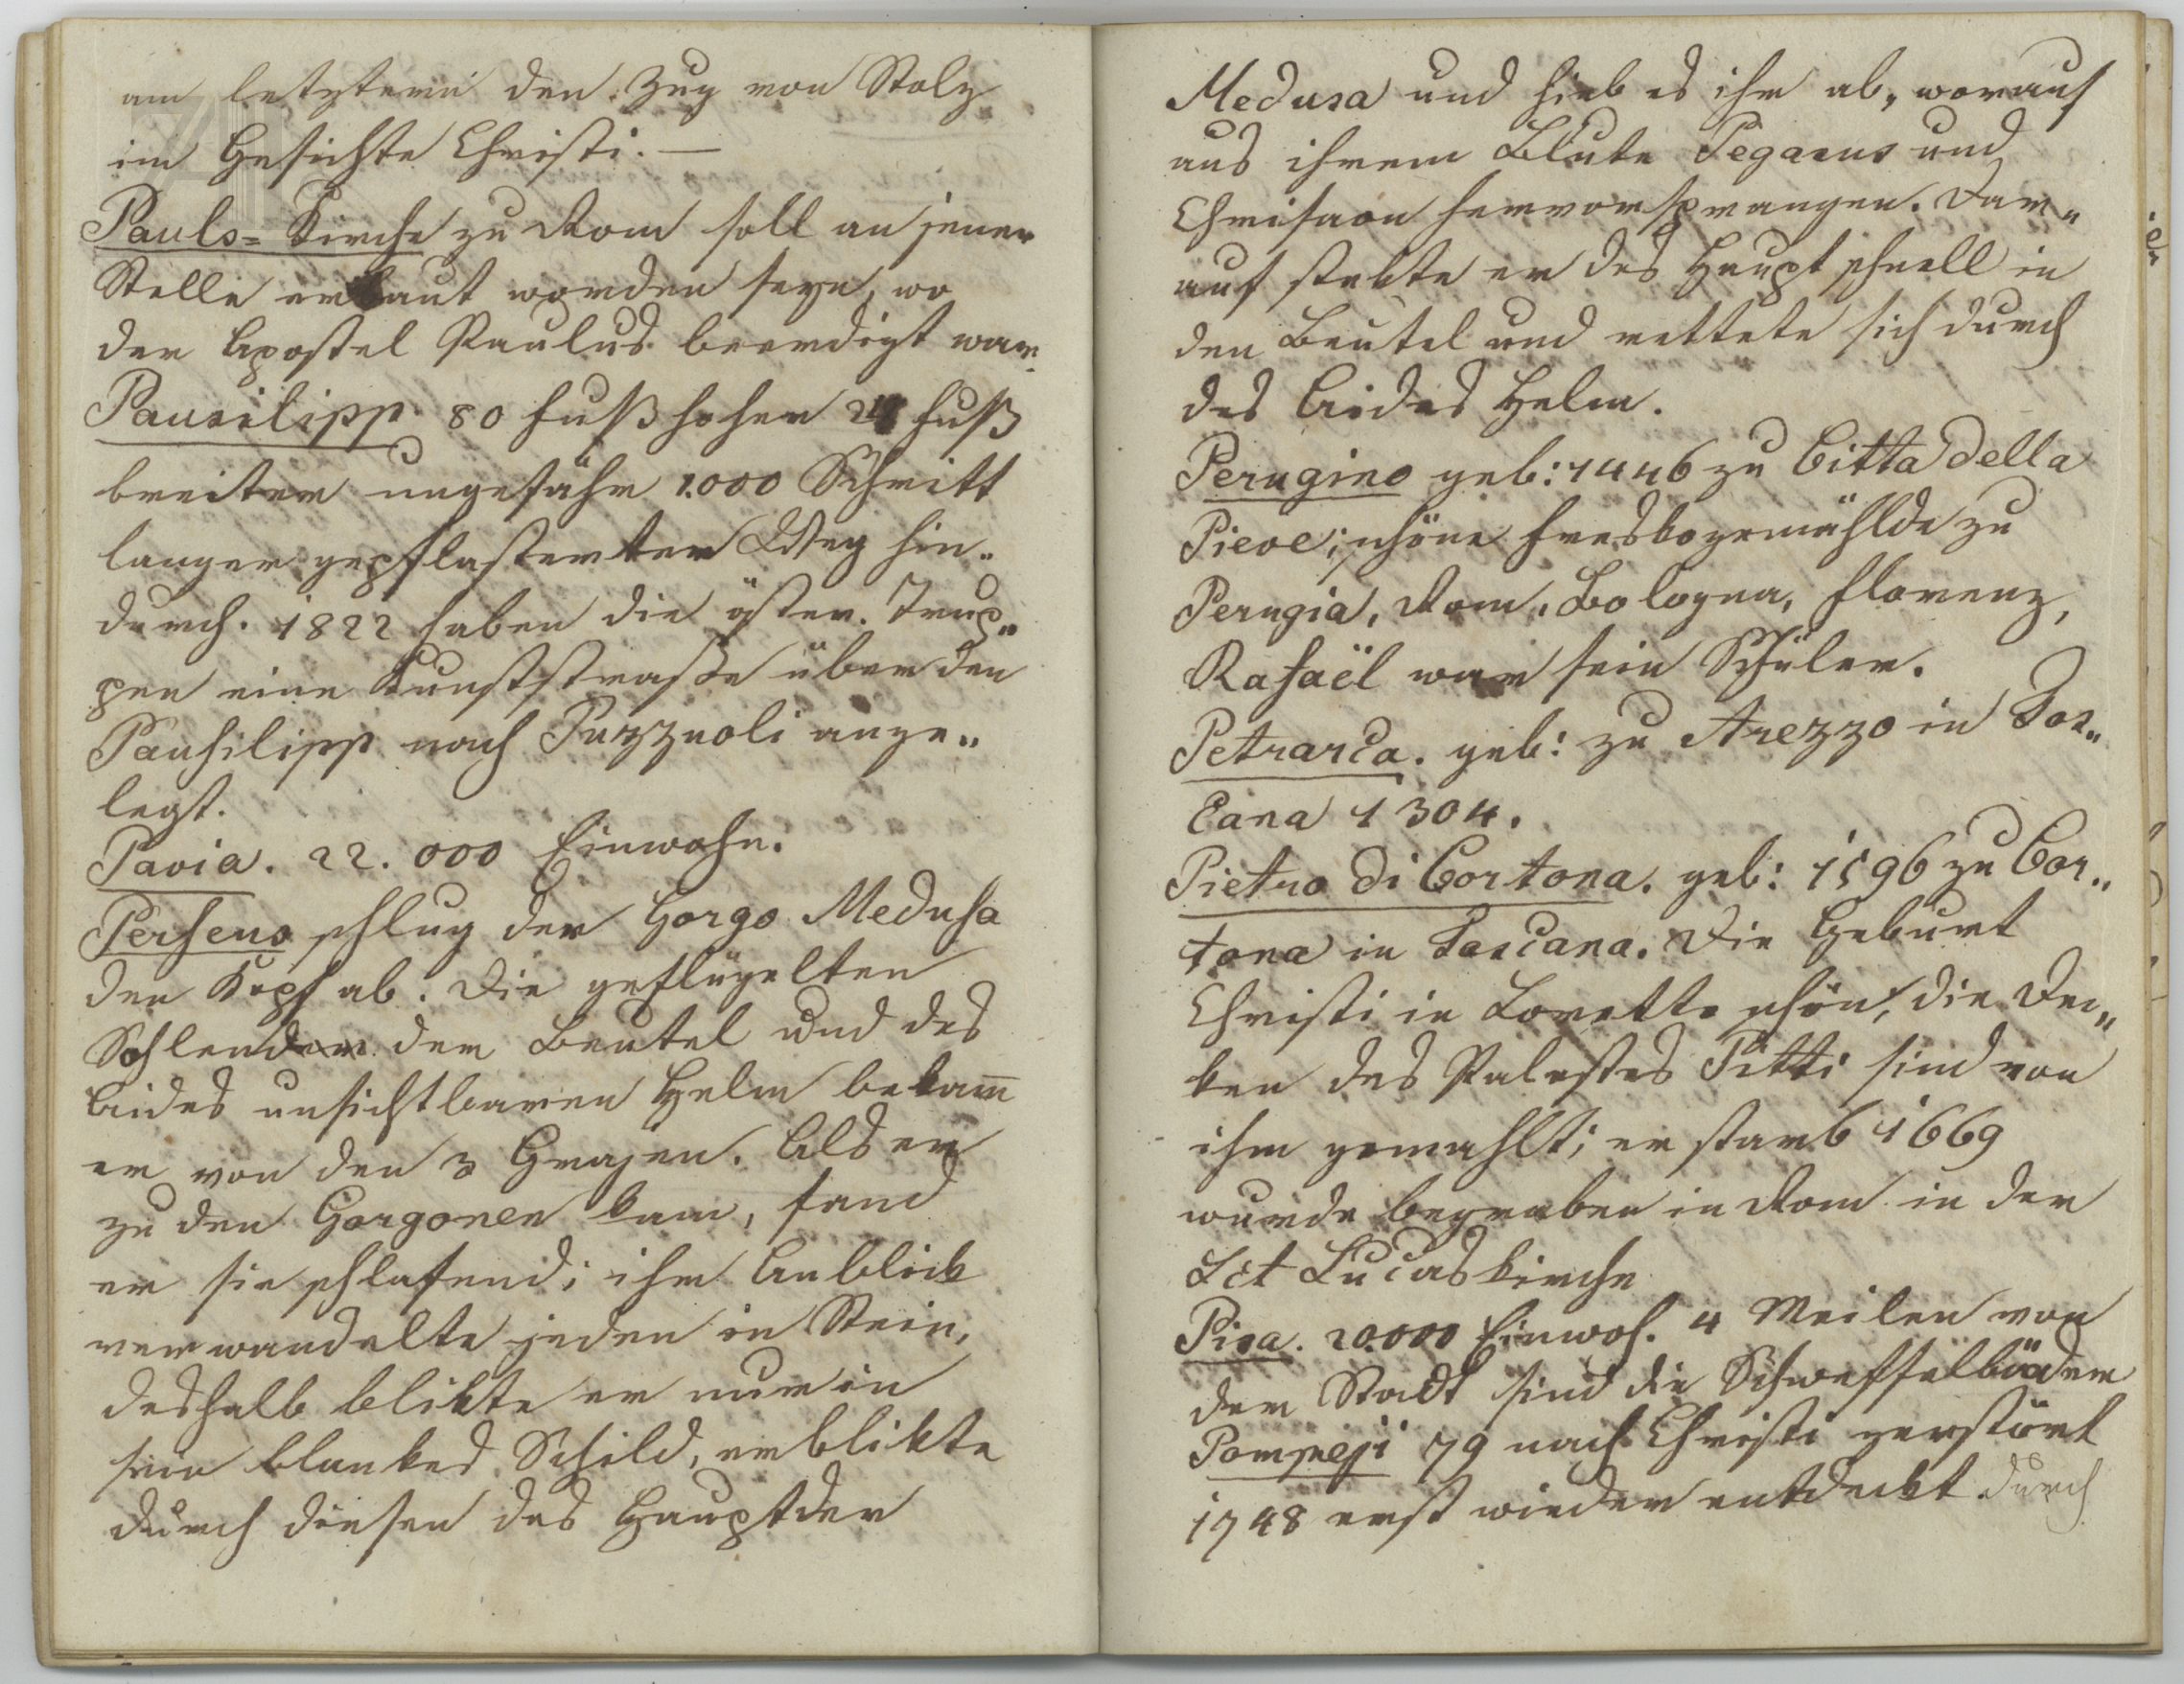 am letztern den Zug von Stolz
im Gesichte Christi. —
Pauls= Kirche zu Rom soll an jener
Stelle erbaut worden seyn, wo
der Apostel Paulus beerdigt war.
Pausilipp 80 Fuß hoher 24 Fuß
breiter ungefähr 1.000 Schritt
langer gepflasterter Weg hin„
durch. 1822 haben die öster. Trup„
pen eine Kunststrasse über den
Pausilipp nach Puzzuoli ange„
legt.
Pavia. 22.000 Einwohn.
Perseus schlug der Gorgo Medusa
den Kopf ab. Die geflügelten
Sohlen den Beutel und des
Aides unsichtbaren Helm bekam̄
er von den 3 Grajen. Als er
zu den Gorgonen kam, fand
er sie schlafend; ihr Anblick
verwandelte jeden in Stein,
deshalb blikte er nur in
sein blankes Schild, erblikte
durch diesen das Haupt der
Medusa und hieb es ihr ab, worauf
aus ihrem Blute Pegasus und
Chrisaor hervorsprangen. Dar„
auf stekte er das Haupt schnell in
den Beutel und rettete sich durch
des Aides Helm.
Perugino geb: 1446 zu Citta della
Pieve; schöne Freskogemählde zu
Perugia, Rom, Bologna, Florenz,
Rafaël war sein Schüler.
Petrarca. geb: zu Arezzo in Tos„
cana 1304.
Pietro di Cortona. geb: 1596 zu Cor„
tona in Toscana. Die Geburt
Christi in Loretto schön, die De„
ken des Palastes Pitti sind von
ihm gemahlt; er starb 1669
wurde begraben in Rom in der
Sct Lucaskirche
Pisa. 20.000 Einwoh. 4 Meilen von
der Stadt sind die Schweffelbäder
Pompeji 79 nach Christi zerstört
1748 erst wieder entdeckt durch